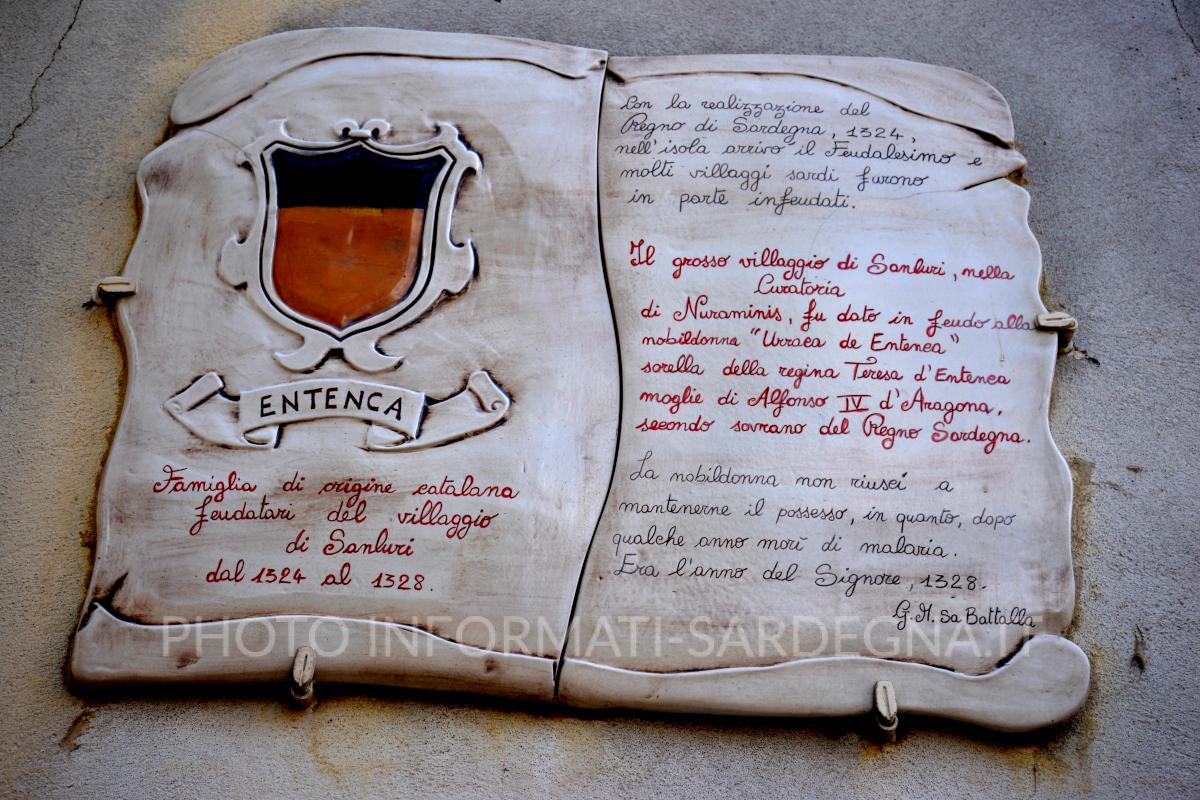 ENTENCA
Famiglia di origine catalana
feudatari del villaggio
di Sanluri
dal 1324 al 1328.
Con la realizzazione del
Regno di Sardegna, 1324,
nell'isola arrivò il Feudalesimo e
molti villaggi sardi furono
in parte infeudati.
Il grosso villaggio di Sanluri, nella
Curatoria
di Nuraminis, fu dato in feudo alla
nobildonna "Urraca de Entenca"
sorella della regina Teresa d'Entenca
moglie di Alfonso IV d'Aragona,
secondo sovrano del Regno Sardegna.
La nobildonna non riuscì a
mantenerne il possesso, in quanto, dopo
qualche anno morì di malaria.
Era l'anno del Signore, 1328.
G.H. Sa Battalla
PHOTO INFORMATI-SARDEGNA.IT